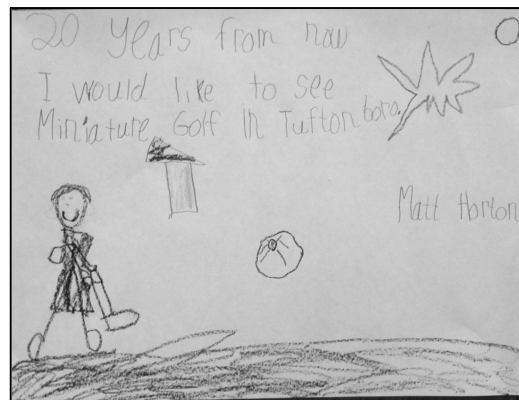 20 years from now
I would like to see
Miniature Golf In Tuftonboro.
Matt Horton